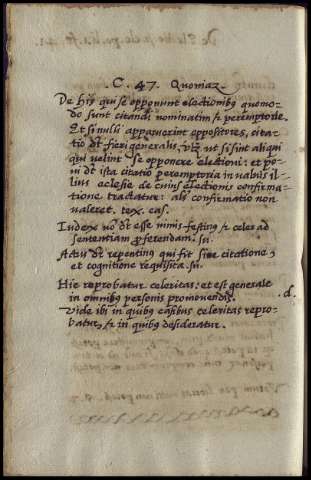 C. 47. Quoniaz
De hijs qui se opponunt electionibus quomo-
do sunt citandi nominatim & peremptorie.
Et si nulli apparuerint oppositores, cita-
tio dt fieri generalis, vtz ut si sint aliqui
qui velint se opponere electioni: et po-
ni dt ista citatio peremptoria in valuis il-
lius eclesie de cuius electionis confirma-
tione tractatur: als confirmatio non
valeret. tex. eas.
Iudex vo dt esse nimis festinus & celes ad
sententiam proferendam. su.
Actus dr repentinus qui fit sine citatione,
et cognitione requisita. su.
Hic reprobatur celeritas: et est generale
in omnibus personis promouendis. .d.
Vide ibi in quibus casibus celeritas repro-
batur, & in quibus desideratur.